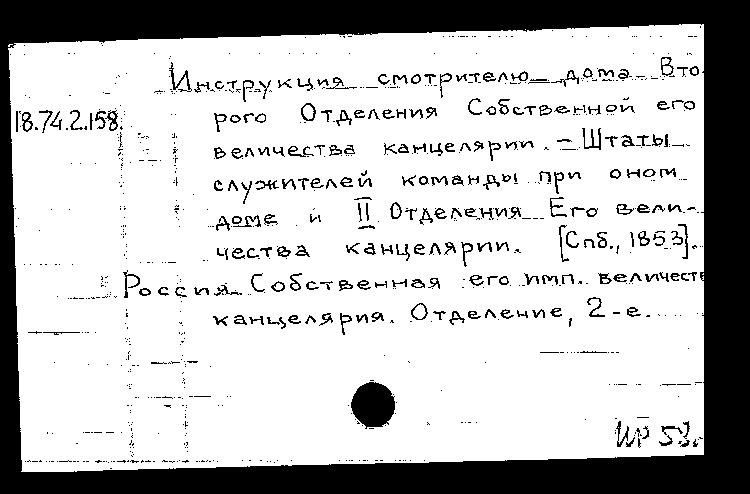 Инструкция смотрителю дома Вто-
18.74.2.158.
рого Отделения Собственной его
величества канцелярии. - Штаты
служителей команды при оном
доме и II Отделения Его вели-
чества канцелярии. [Спб., 1853].
Россия. Собственная его имп. величеств
канцелярия. Отделение, 2-е.